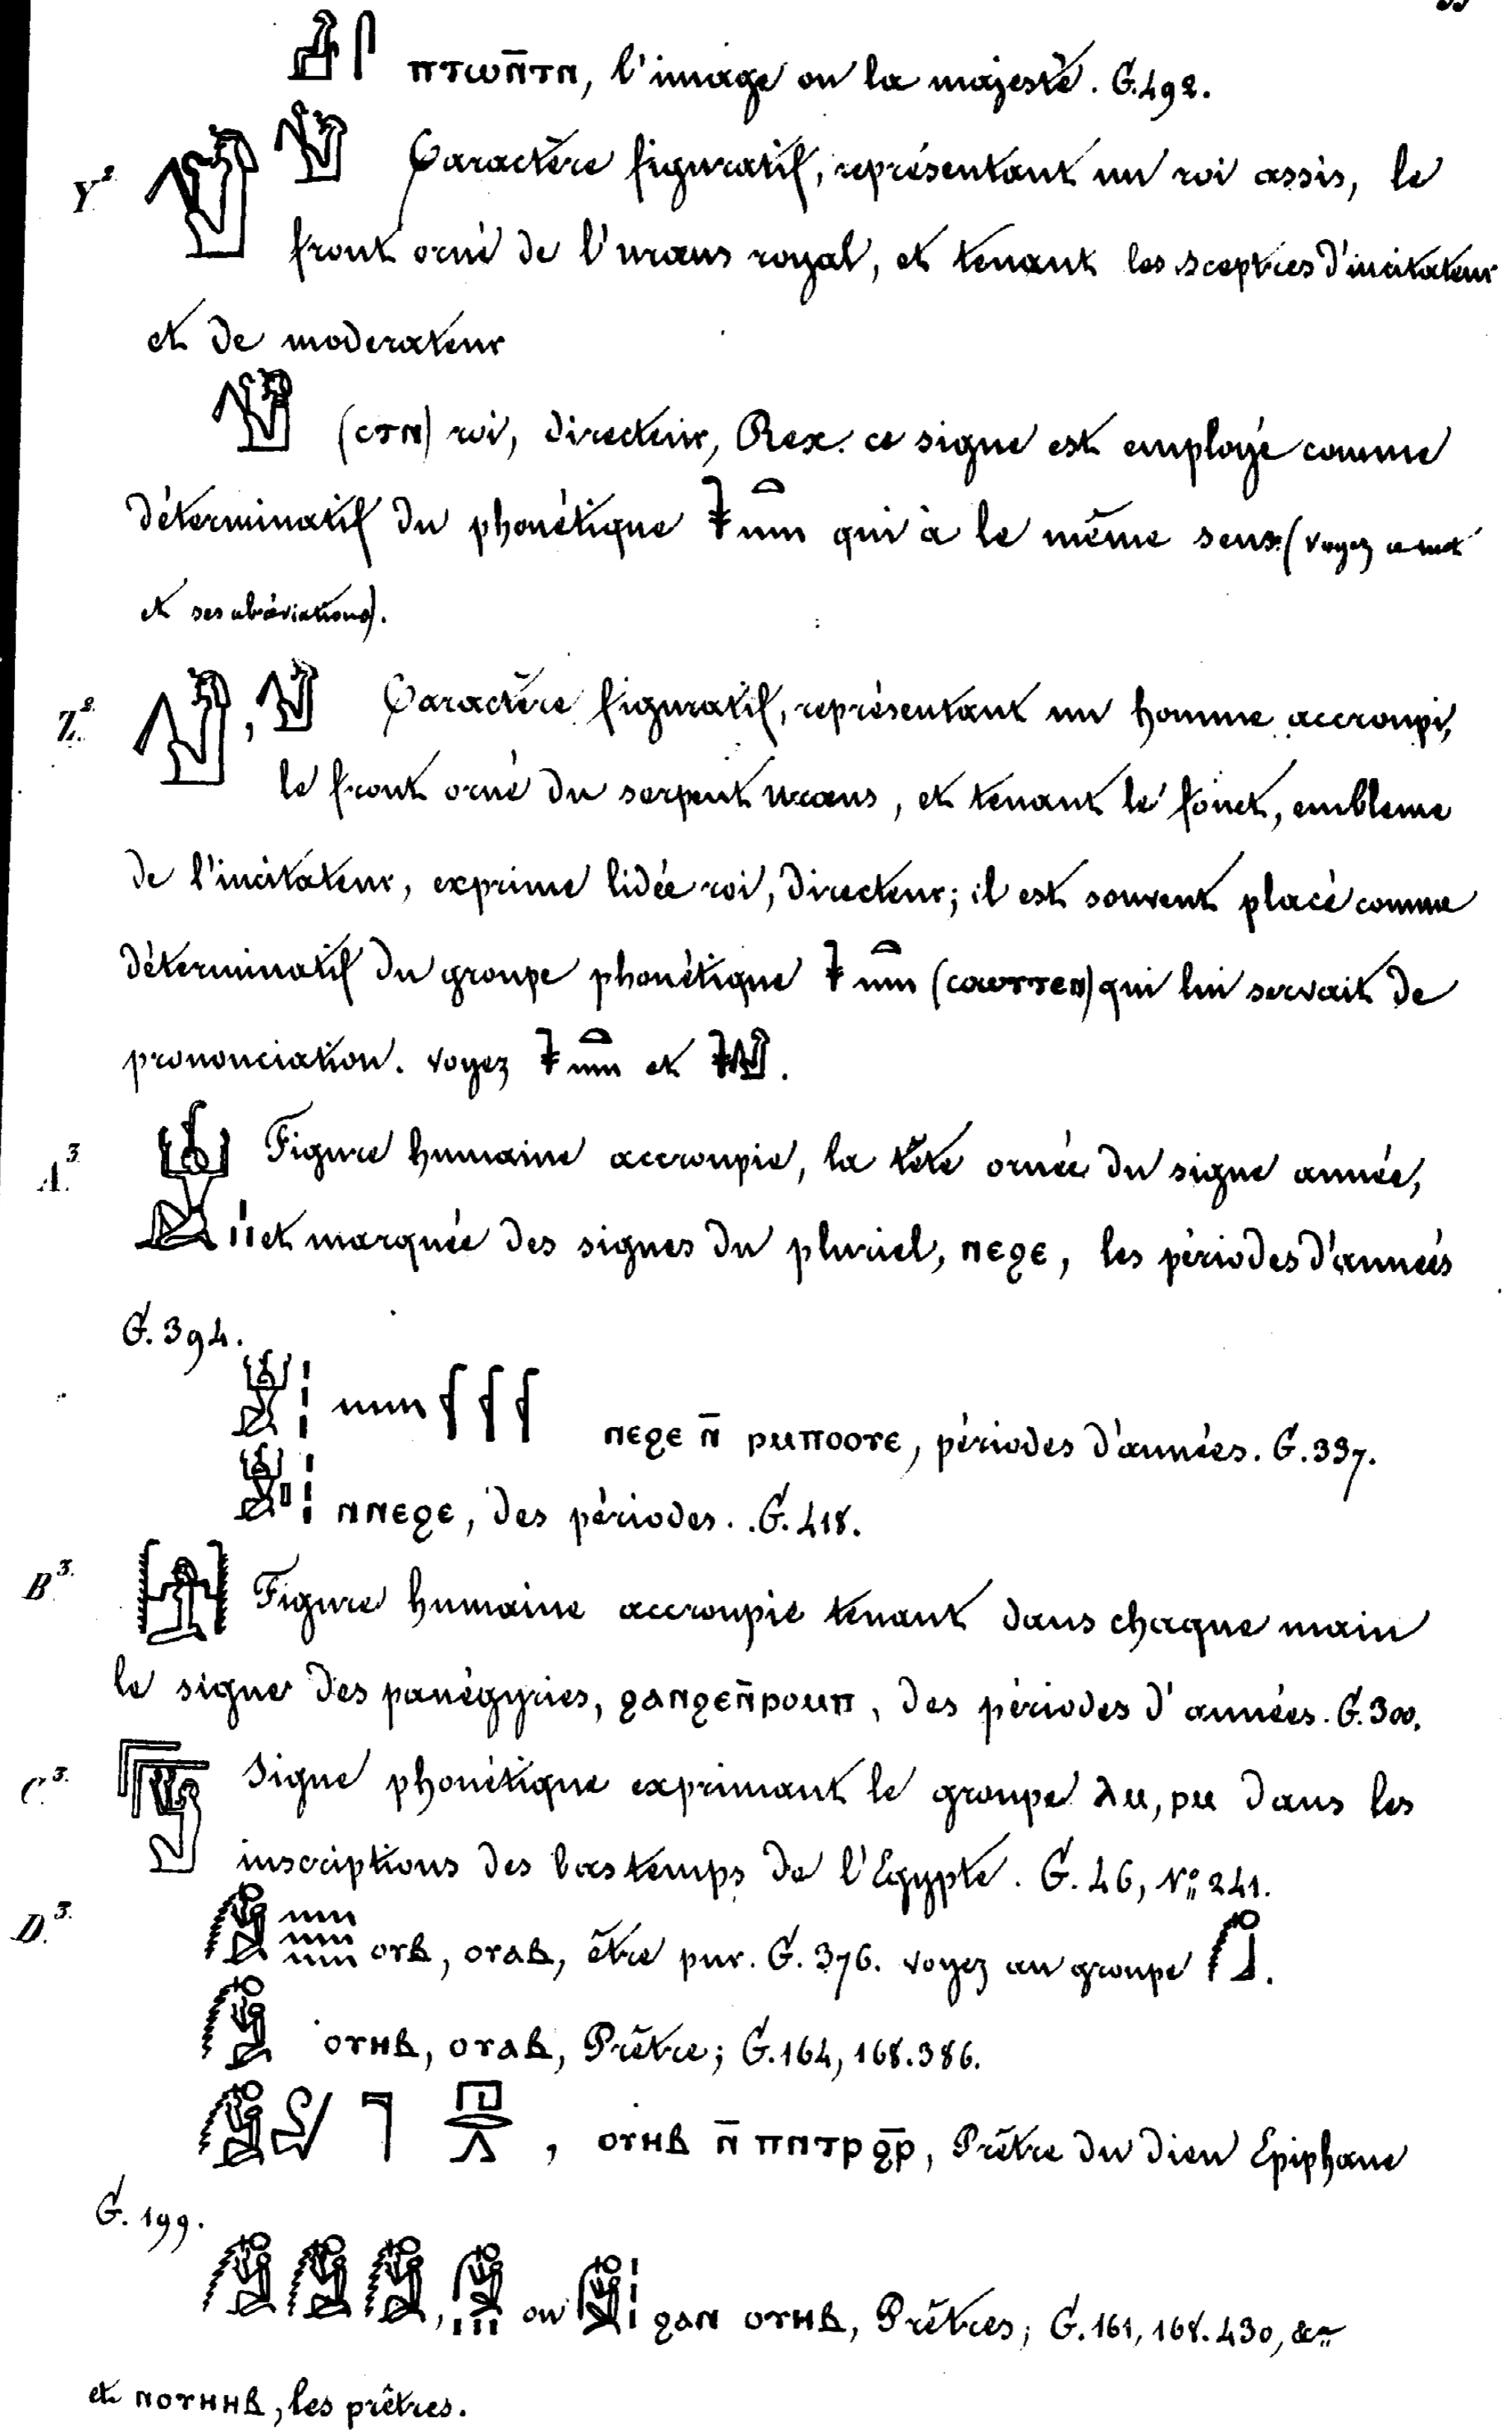 ⲡⲧⲱⲛ̄ⲧⲛ, l'image ou la majesté. G. 492.
Y². Caractère figuratif, représentant un roi assis, le
front orné de l'uraeus royal, et tenant les sceptres d'incitateur
et de moderateur
(ⲥⲧⲛ) roi, directeur, Rex. ce signe est employé comme
déterminatif du phonétique qui à le même sens (voyez ce mot
et ses abréviations).
Z². , Caractère figuratif, représentant un homme accroupi,
le front orné du serpent uraeus, et tenant le fouet, embleme
de l'incitateur, exprime lidée roi, directeur; il est souvent placé comme
déterminatif du groupe phonétique (ⲥⲟⲩⲧⲧⲉⲛ) qui lui servait de
prononciation. voyez et .
A³. Figure humaine accroupie, la tête ornée du signe année,
et marquée des signes du pluriel, ⲛⲉϩⲉ, les périodes d'années
G. 394.
ⲛⲉϩⲉ ⲛ̄ ⲣⲙⲡⲟⲟⲩⲉ, périodes d'années. G. 337.
ⲛⲛⲉϩⲉ, des périodes. G. 418.
B³. Figure humaine accroupie tenant dans chaque main
le signe des panégyries, ϩⲁⲛϩⲉⲛ̄ⲣⲟⲙⲡ, des périodes d'années. G. 300.
C³. Signe phonétique exprimant le groupe ⲗⲙ, ⲣⲙ dans les
inscriptions des bas temps de l'Egypte. G. 46, N° 241.
D³. ⲟⲩⲃ, ⲟⲩⲁⲃ, être pur. G. 376. voyez au groupe .
ⲟⲩⲏⲃ, ⲟⲩⲁⲃ, Prêtre; G. 164, 168. 386.
, ⲟⲩⲏⲃ ⲛ̄ ⲡⲛⲧⲣ ϩ̄ⲣ̄, Prêtre du dieu Epiphane
G. 199.
, ou ϩⲁⲛ ⲟⲩⲏⲃ, Prêtres; G. 161, 168. 430, &a
et ⲛⲟⲩⲏⲏⲃ, les prêtres.